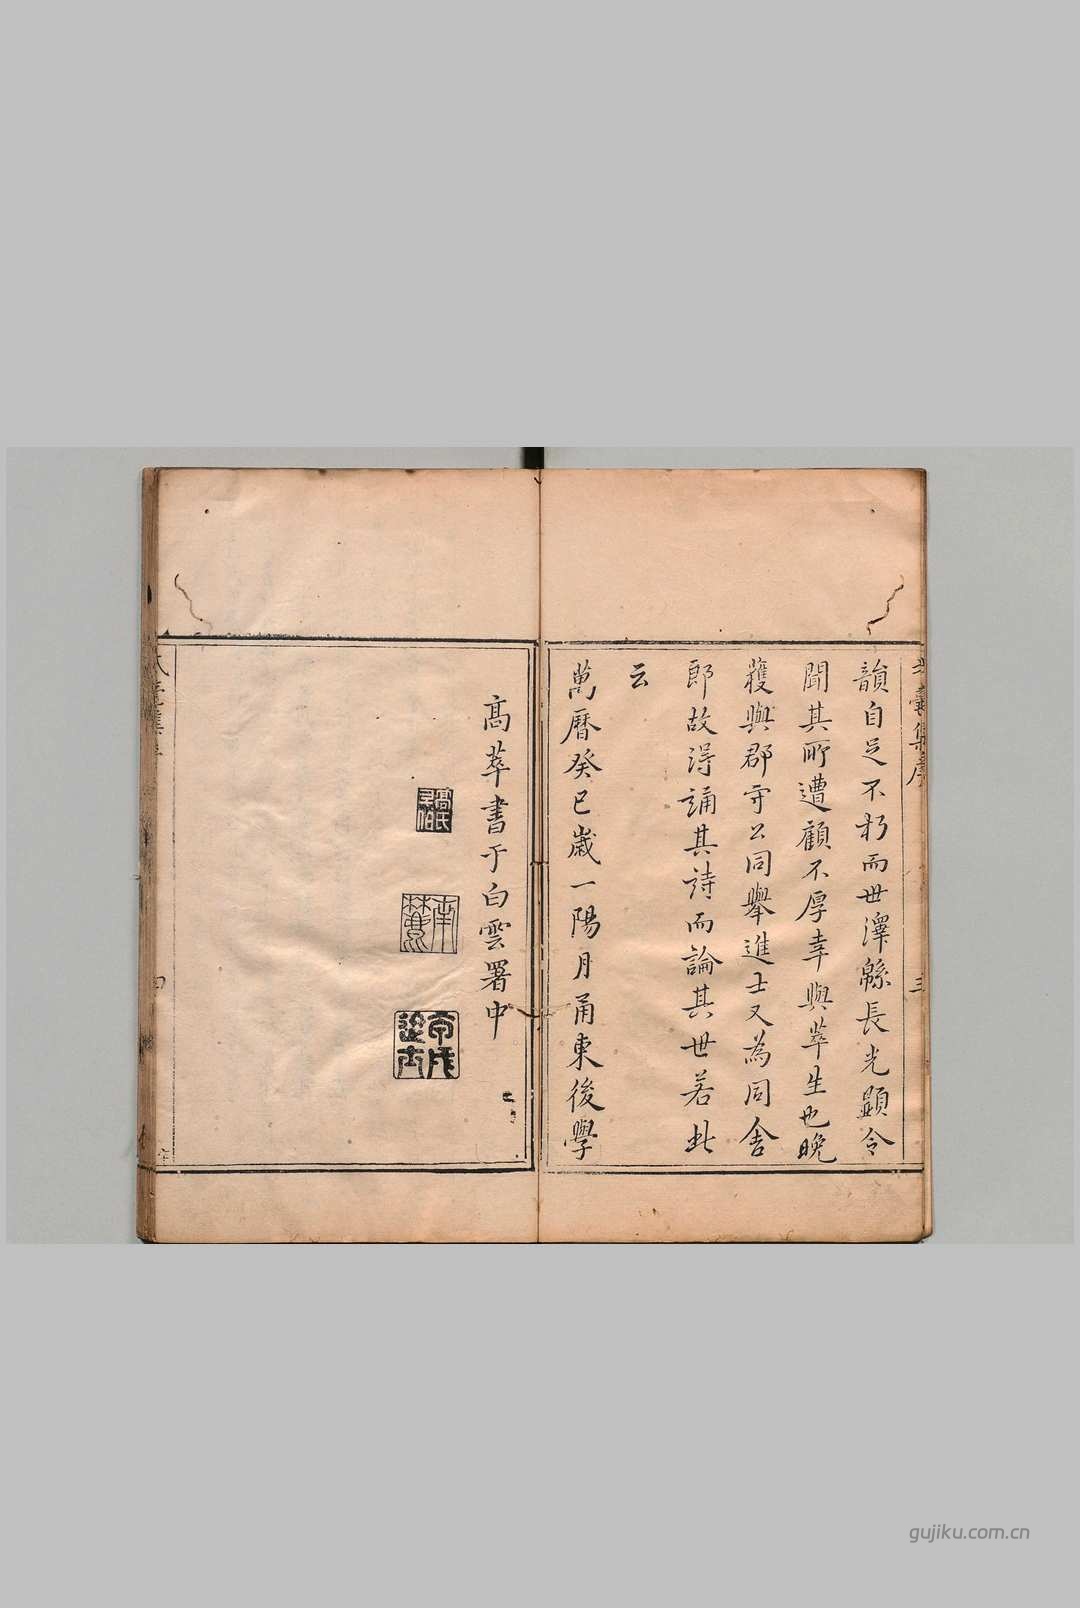 韻自足不朽而世澤緜長光顯令
聞其所遭顧不厚幸與萃生也晚
穫與郡守公同舉進士又為同舍
郎故得誦其詩而論其世若此
云
萬曆癸巳歲一陽月甬東後學
高萃書于白雲署中
高氏
三
gujiku.com.cn